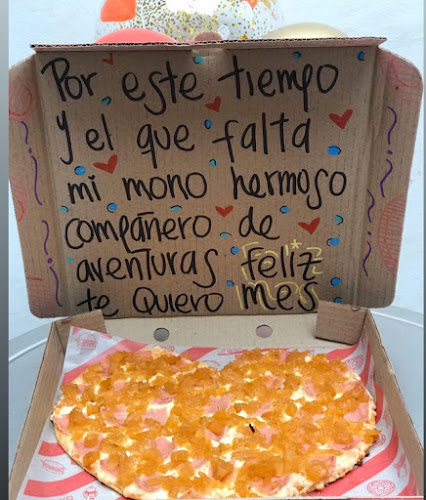 Por este tiempo
y el que falta
mi mono hermoso
compañero de
aventuras feliz
te Quiero mes